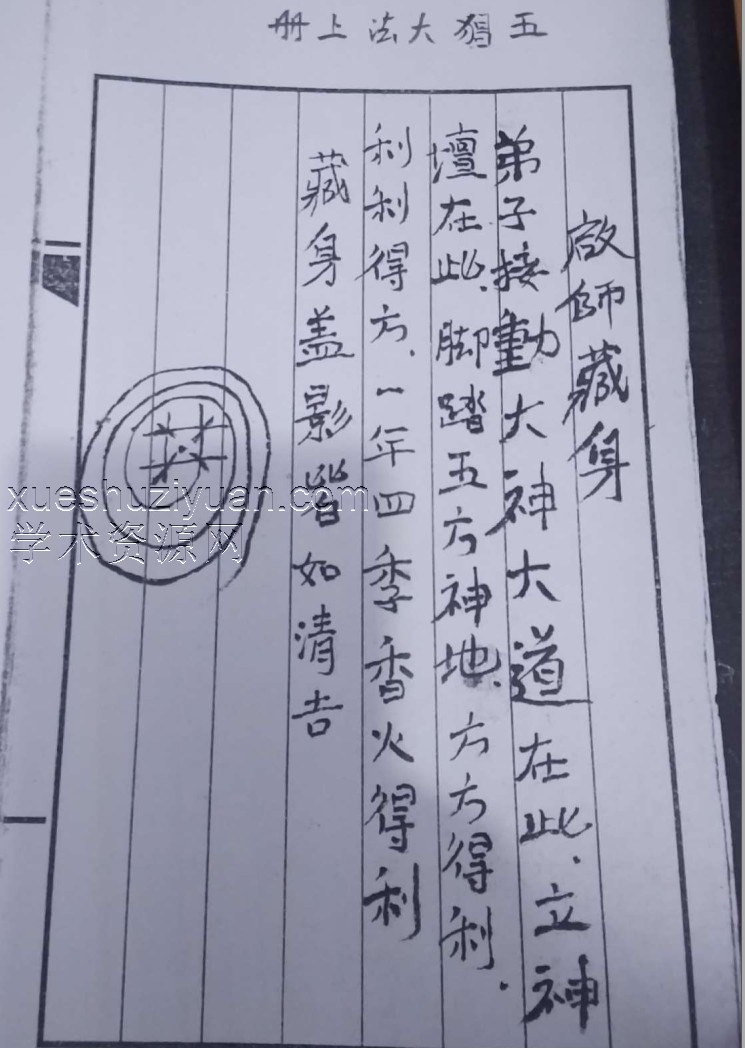 五猖大法上册
啟師藏身
弟子接動大神大道在此、立神
壇在此、脚踏五方神地、方方得利、
利利得方、一年四季香火得利
藏身盖影皆如清吉
xueshuziyuan.com
学术资源网